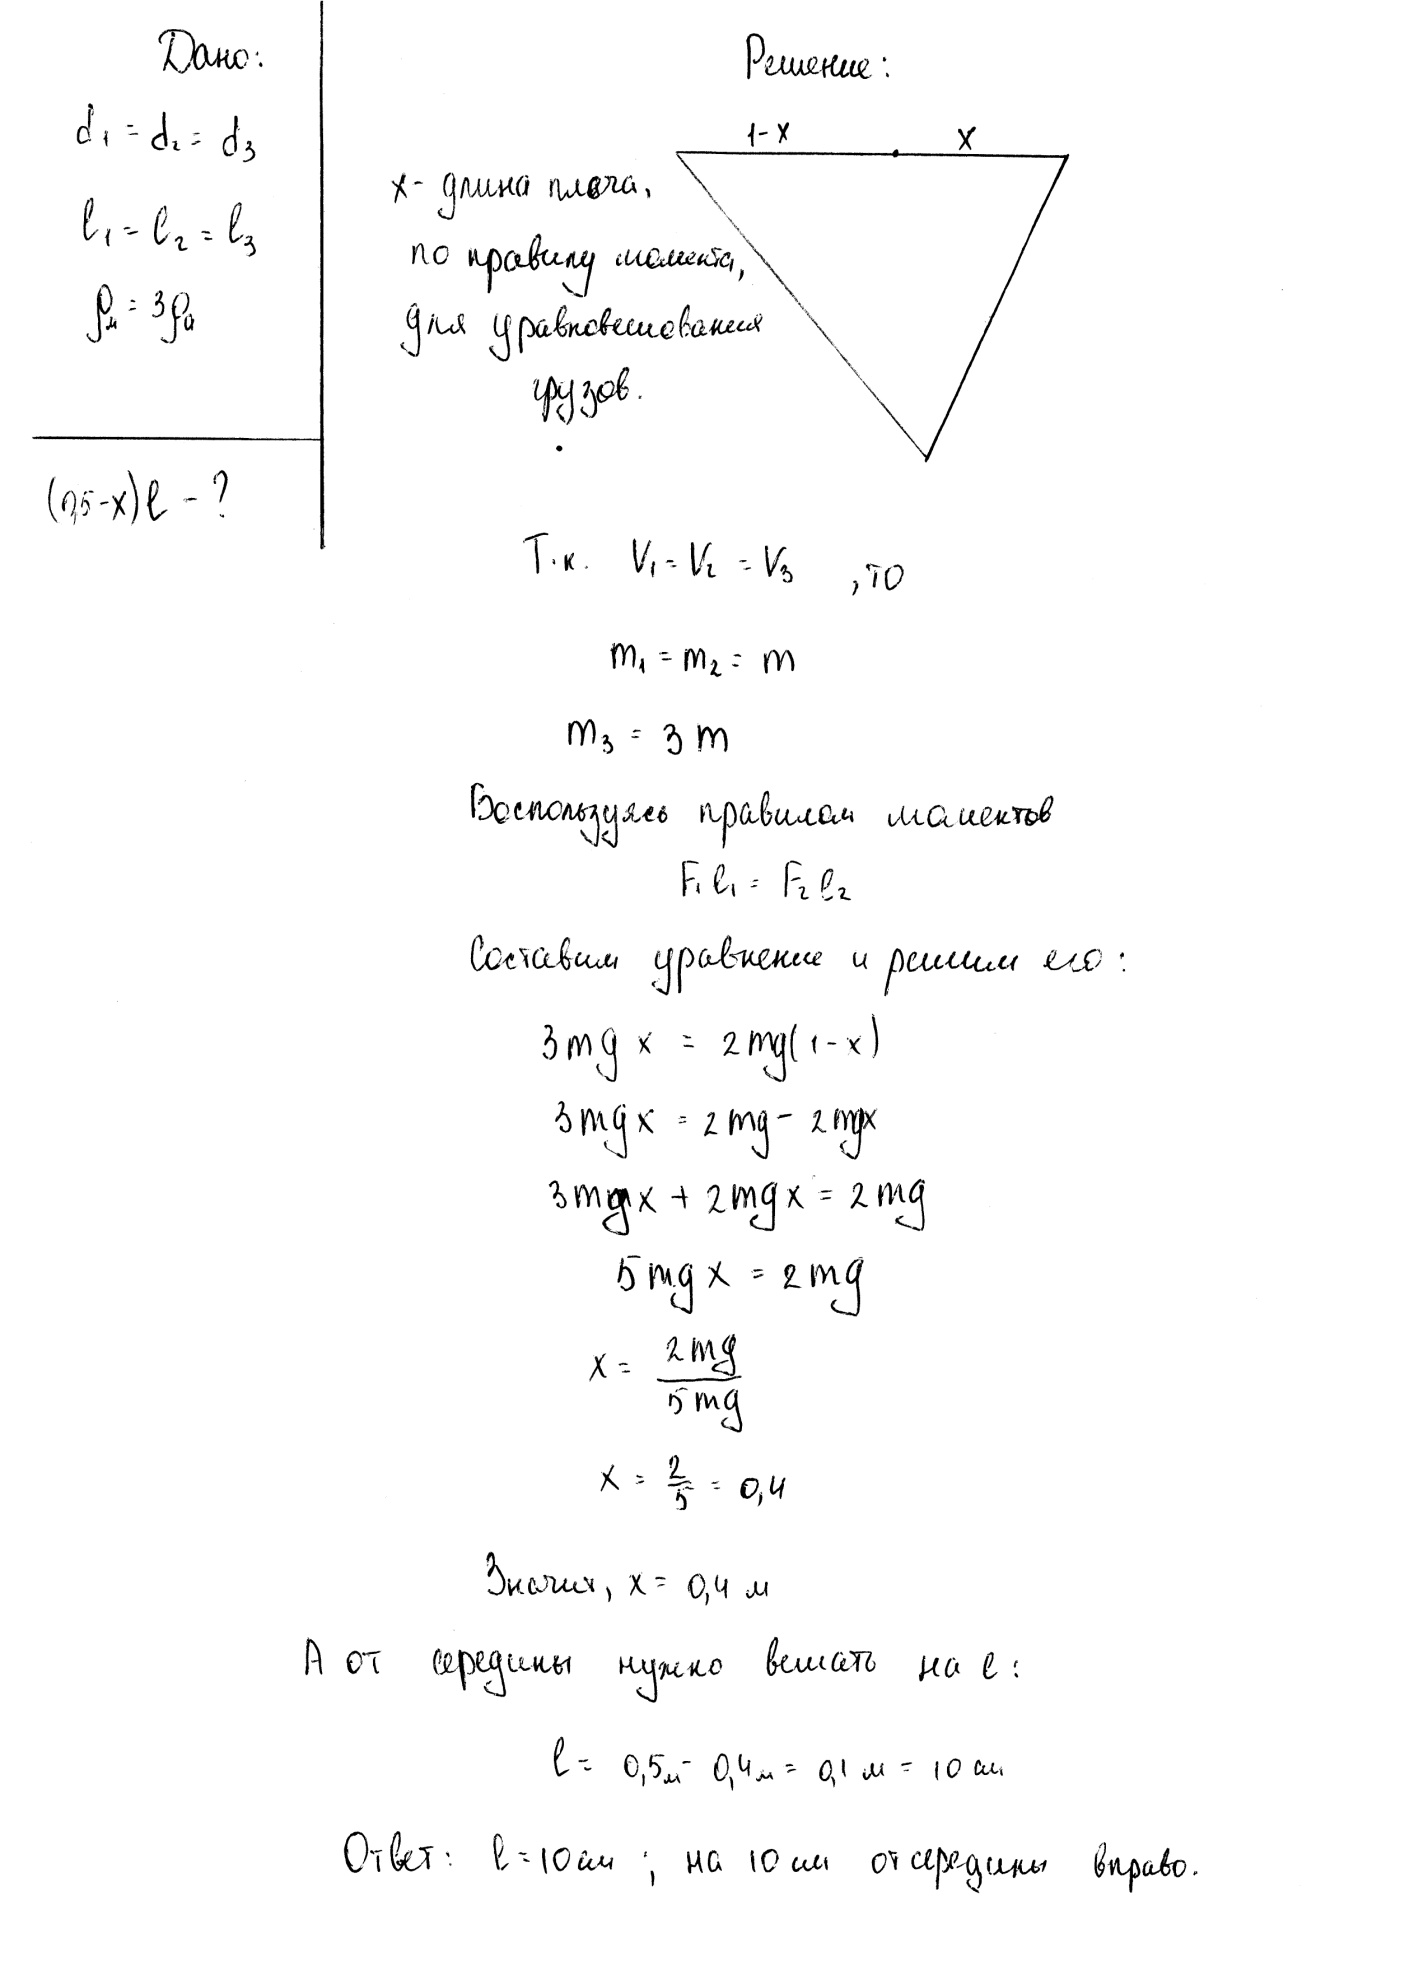 Дано:
d₁ = d₂ = d₃
l₁ = l₂ = l₃
ρм = 3ρа
(0,5-x)l - ?
Решение:
1-x
x
x - длина плеча,
по правилу момента,
для уравновешования
грузов.
Т.к. V₁ = V₂ = V₃ , то
m₁ = m₂ = m
m₃ = 3m
Воспользуясь правилом моментов
F₁l₁ = F₂l₂
Составим уравнение и решим его:
3mgx = 2mg(1-x)
3mgx = 2mg - 2mgx
3mgx + 2mgx = 2mg
5mgx = 2mg
x = 2mg/5mg
x = 2/5 = 0,4
Значит, x = 0,4 м
А от середины нужно вешать на l:
l = 0,5м - 0,4м = 0,1 м = 10 см
Ответ: l = 10 см ; на 10 см от середины вправо.